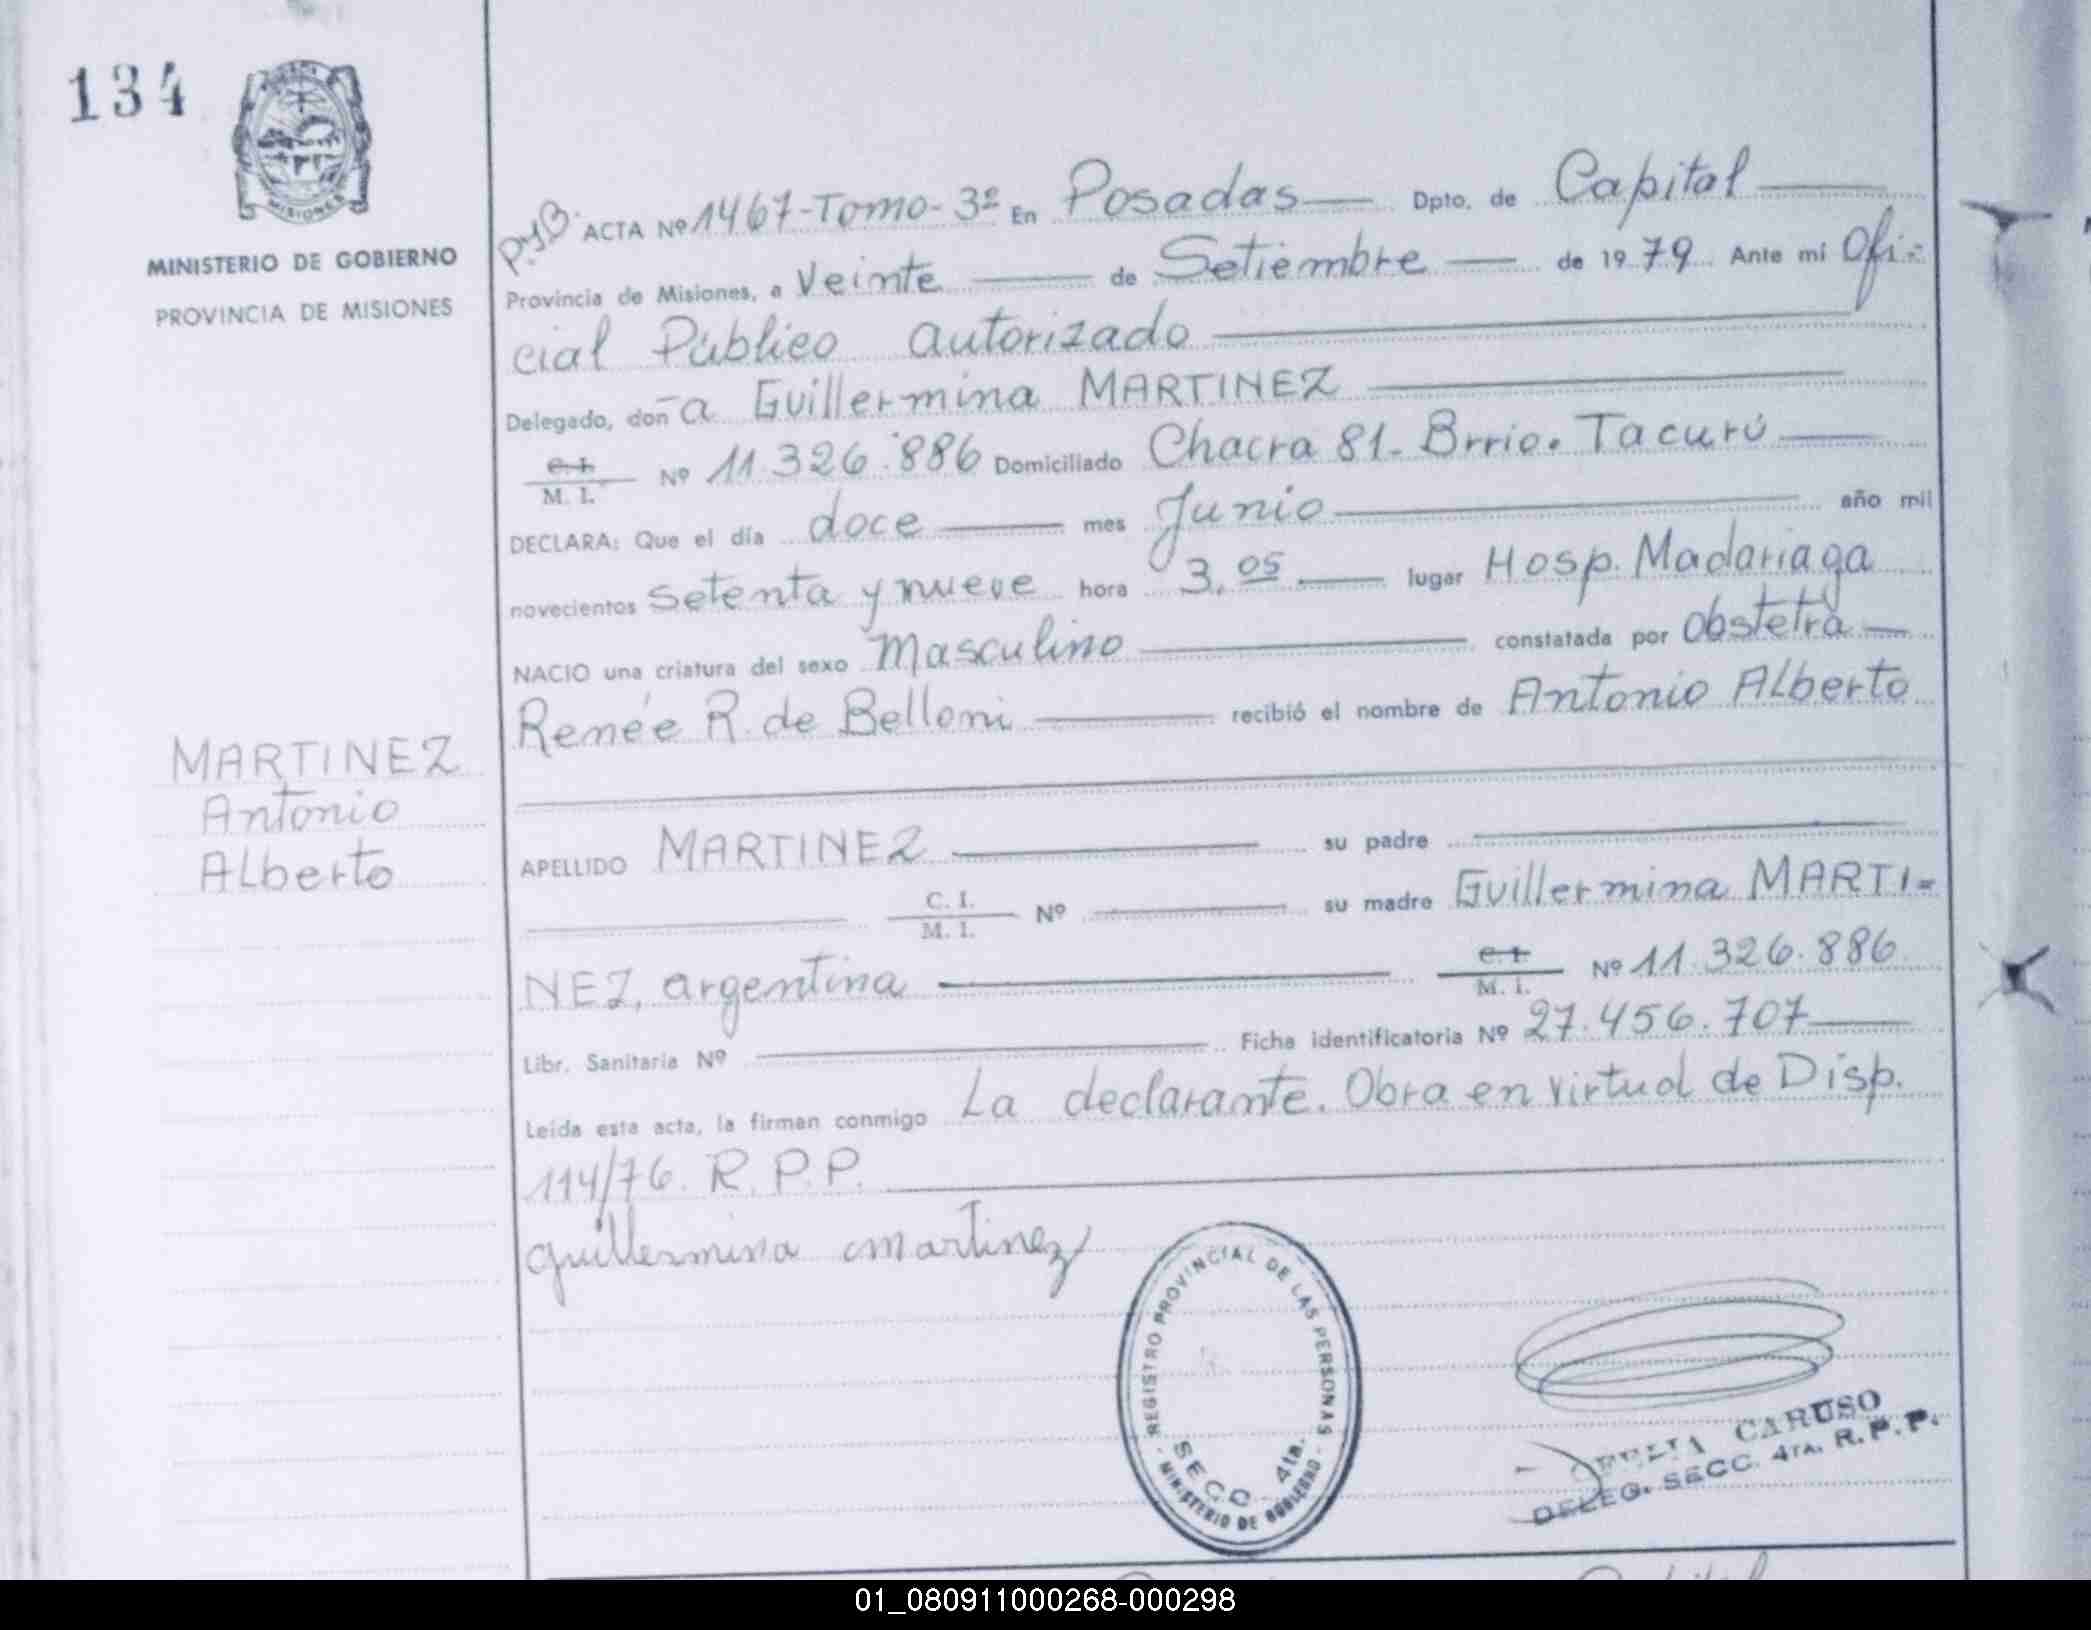 134
MISIONES
MINISTERIO DE GOBIERNO
PROVINCIA DE MISIONES
P.yB. ACTA Nº 1467-Tomo-3º En Posadas Dpto. de Capital
Provincia de Misiones, a Veinte de Setiembre de 1979 Ante mi Ofi-
cial Público autorizado
Delegado, doña Guillermina MARTINEZ
C.I.
M. I. Nº 11.326.886 Domiciliado Chacra 81- Brrio. Tacurú
DECLARA: Que el día doce mes Junio año mil
novecientos setenta y nueve hora 3,05 lugar Hosp. Madariaga
NACIO una criatura del sexo Masculino constatada por Obstetra
Renée R. de Belloni recibió el nombre de Antonio Alberto
MARTINEZ
Antonio
Alberto
APELLIDO MARTINEZ su padre
C. I.
M. I. Nº su madre Guillermina MARTI=
NEZ, argentina C.I. M. I. Nº 11.326.886
Libr. Sanitaria Nº Ficha identificatoria Nº 27.456.707
Leída esta acta, la firman conmigo La declarante. Obra en virtud de Disp.
114/76. R.P.P.
guillermina martinez
REGISTRO PROVINCIAL DE LAS PERSONAS
SECC. 4ta.
MINISTERIO DE GOBIERNO
CARUSO
DELEG. SECC. 4TA. R.P.P.
01_080911000268-000298